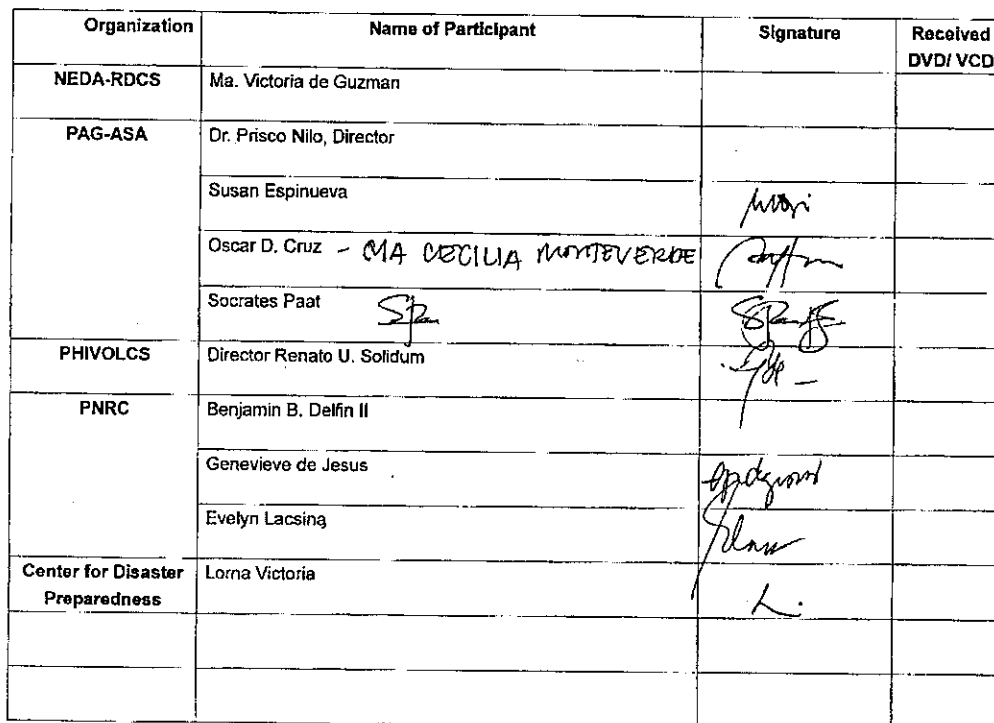 Organization Name of Participant Signature Received DVD/ VCD
NEDA-RDCS Ma. Victoria de Guzman
PAG-ASA Dr. Prisco Nilo, Director
Susan Espinueva
Oscar D. Cruz - MA CECILIA MONTEVERDE
Socrates Paat
PHIVOLCS Director Renato U. Solidum
PNRC Benjamin B. Delfin II
Genevieve de Jesus
Evelyn Lacsina
Center for Disaster Preparedness Lorna Victoria